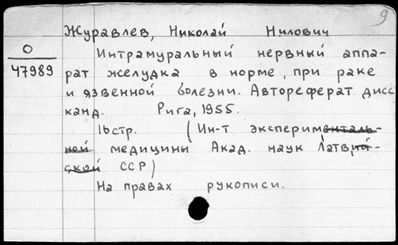 9
Журавлев, Николай Нилович
О
47989
Интрамуральный нервный аппа-
рат желудка в норме, при раке
и язвенной болезни. Автореферат дисс
канд. Рига, 1955.
16стр. (Ин-т эксперименталь-
ной медицины Акад. наук Латвий-
ской ССР)
На правах рукописи.